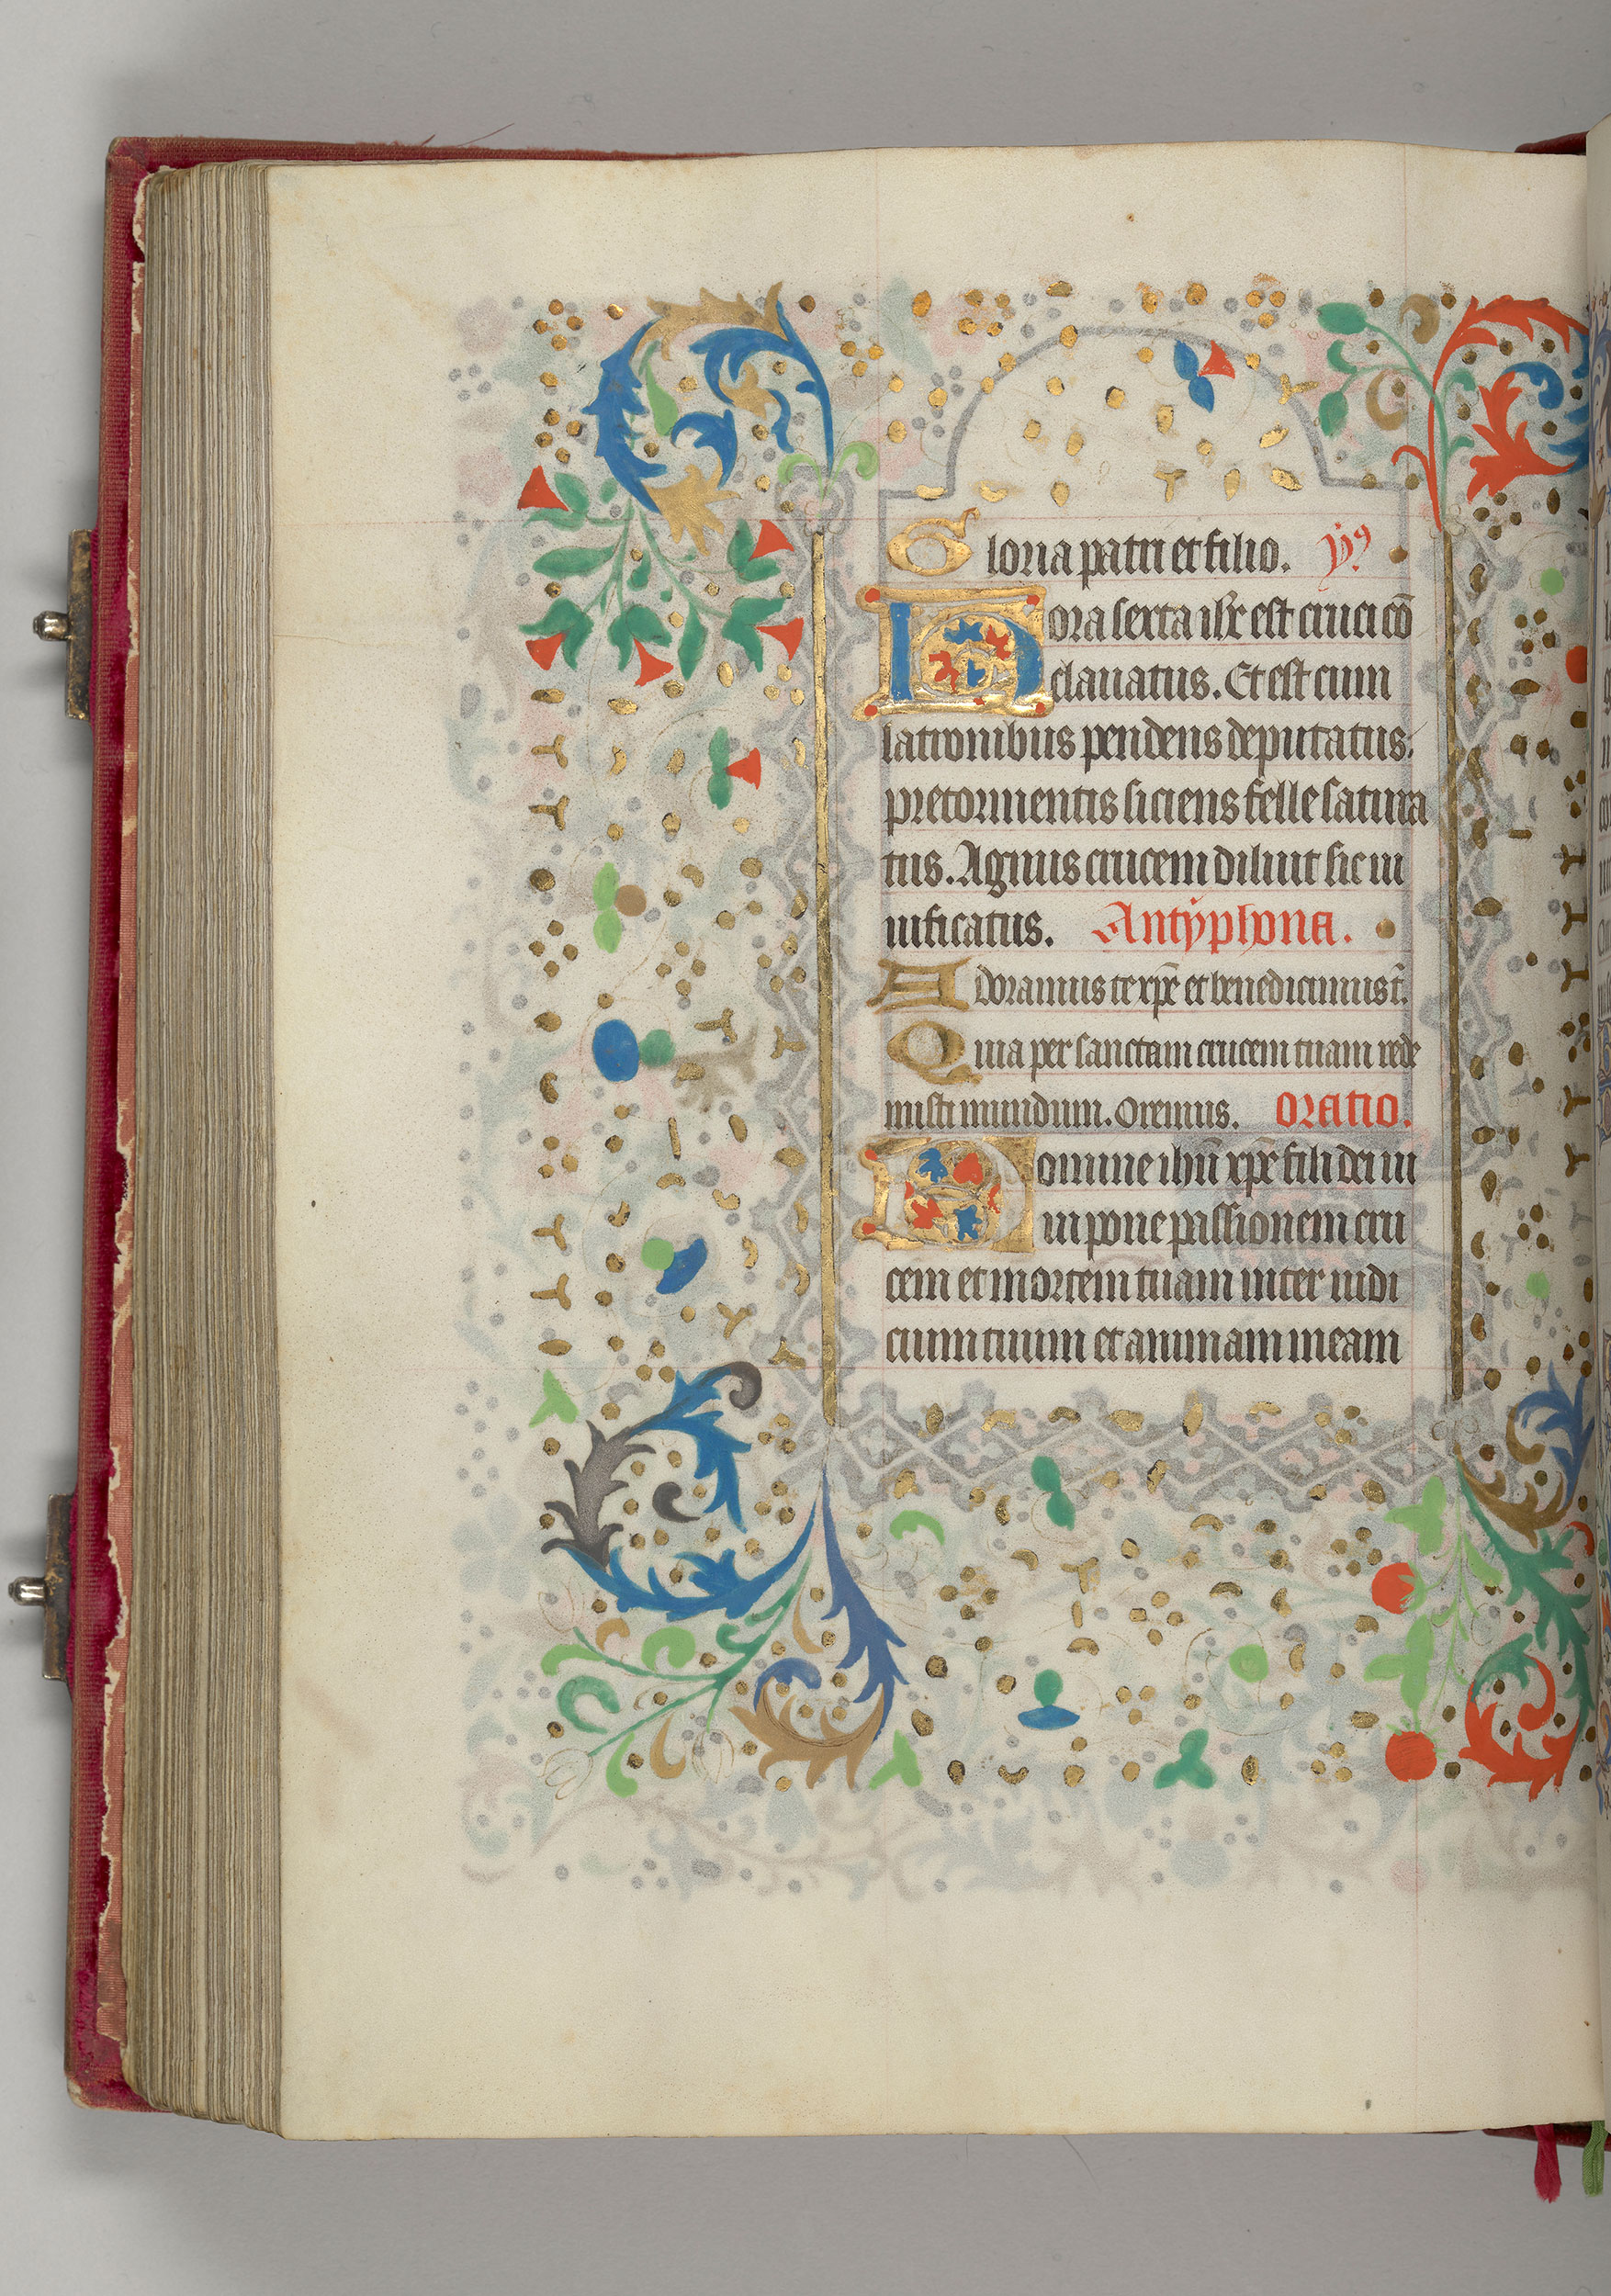 Gloria patri et filio. ỹ⁹.
Hora sexta ihs̄ est cruci cō
clauatus. Et est cum
latronibus pendens deputatus.
pre tormentis siciens felle satura
tus. Agnus crucem diluit sic iu
uificatus. Antyphona.
Adoramus te xpē et benedicimus t̄.
Quia per sanctam crucem tuam rede
misti mundum. Oremus. Oratio.
Domine ihū xpē fili dei ui
ui pone passionem cru
cem et mortem tuam inter iudi
cium tuum et animam meam